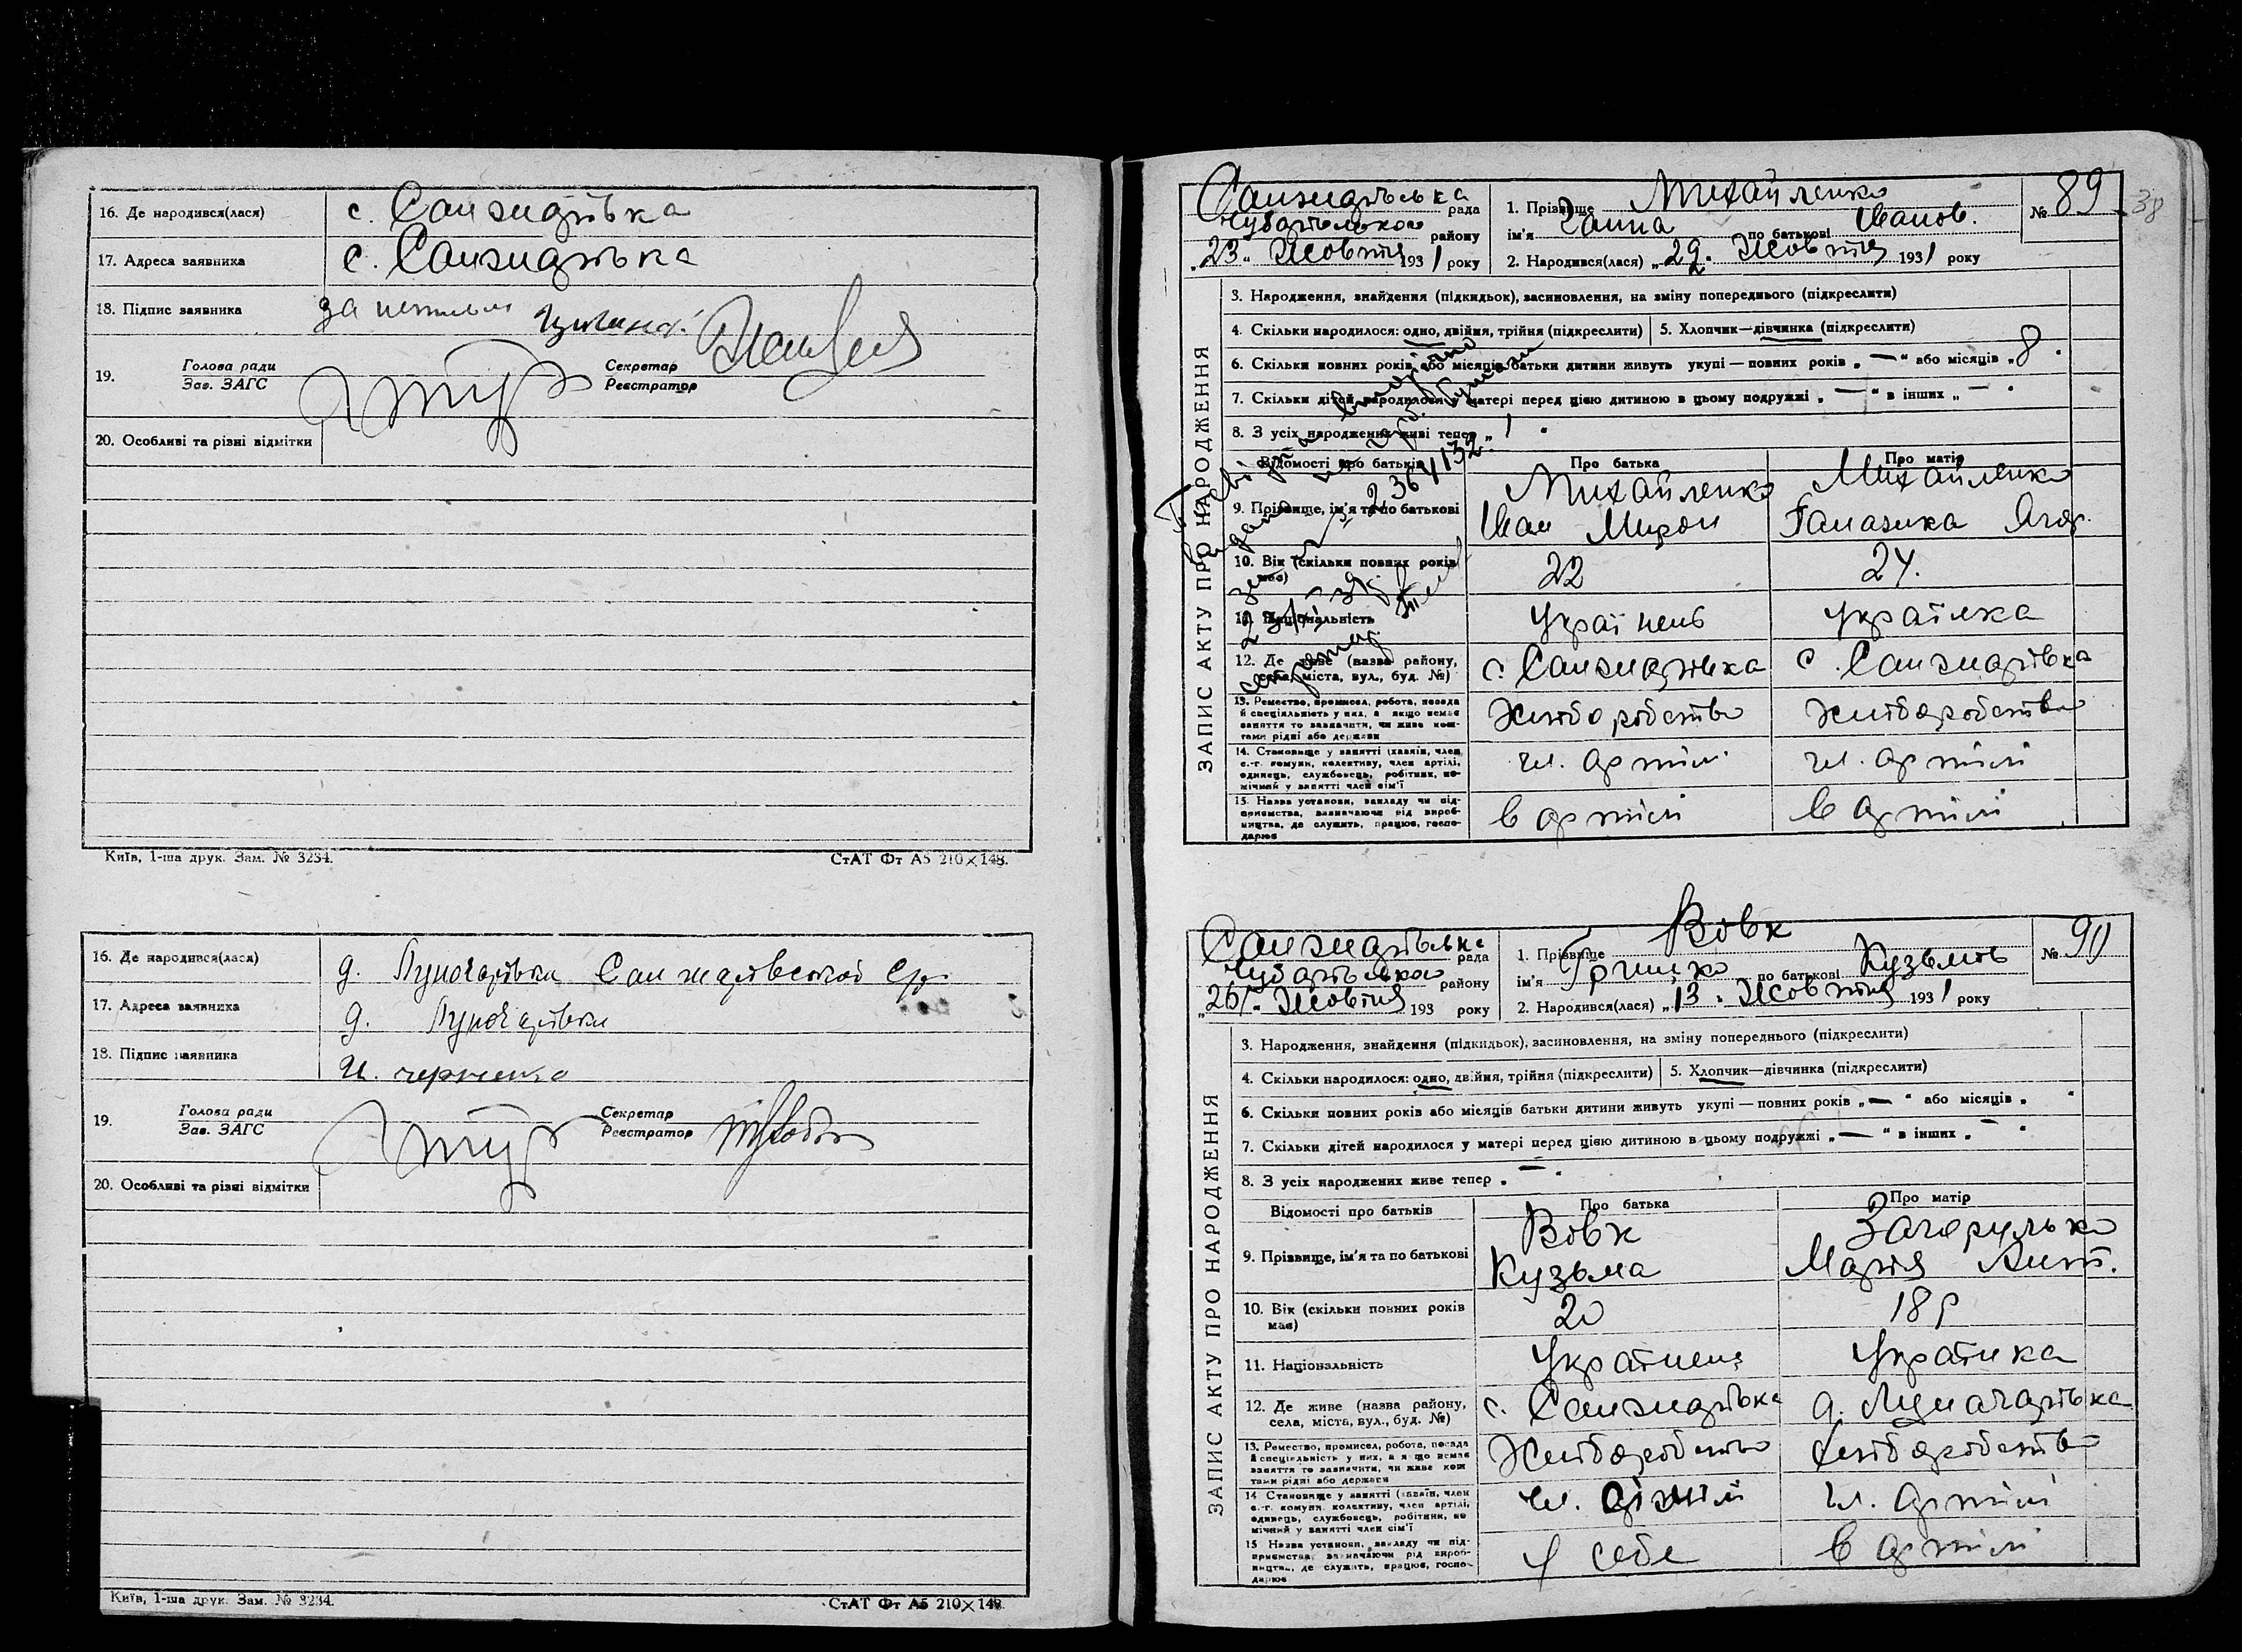 16. Де народився(лася) с. Санжарівка
17. Адреса заявника с. Санжарівка
18. Підпис заявника за неписьм
19. Голова ради Секретар
Зав. ЗАГС Реєстратор
20. Особливі та різні відмітки
Київ, 1-ша друк. Зам. № 3234. СтАТ Фт А5 210×148.
16. Де народився(лася) д. Луначарівка Санжарівської с/р
17. Адреса заявника д. Луначарівка
18. Підпис заявника
19. Голова ради Секретар
Зав. ЗАГС Реєстратор
20. Особливі та різні відмітки
Київ, 1-ша друк. Зам. № 3234. СтАТ Фт А5 210×148.
38
ЗАПИС АКТУ ПРО НАРОДЖЕННЯ
Санжарівська рада
Чубарівського району
„23" Жовтня 1931 року
1. Прізвище Михайленко
ім'я Ганна по батькові Іванов.
2. Народився(лася) „22" Жовтня 1931 року
№ 89
3. Народження, знайдення (підкидьок), засиновлення, на зміну попереднього (підкреслити)
4. Скільки народилося: одно, двійня, трійня (підкреслити) 5. Хлопчик—дівчинка (підкреслити)
6. Скільки повних років або місяців батьки дитини живуть укупі — повних років „—" або місяців „8"
7. Скільки дітей народилося у матері перед цією дитиною в цьому подружжі „—" в інших „—"
8. З усіх народжених живі тепер „1"
Відомості про батьків Про батька Про матір
9. Прізвище, ім'я та по батькові Михайленко Михайленко
Іван Мирон Ягор.
10. Вік (скільки повних років має) 22 24.
11. Національність Українець Українка
12. Де живе (назва району, села, міста, вул., буд. №) с. Санжарівка с. Санжарівка
13. Ремество, промисел, робота, посада й спеціяльність у них, а якщо немає заняття то зазначити, чи живе коштами рідні або держави Хліборобство Хліборобство
14. Становище у занятті (хазяїн, член с.-г. комуни, колективу, член артілі, одинець, службовець, робітник, помічний у занятті член сім'ї чл. артілі чл. артілі
15. Назва установи, закладу чи підприємства, зазначаючи рід виробництва, де служить, працює, господарює в артілі в артілі
ЗАПИС АКТУ ПРО НАРОДЖЕННЯ
Санжарівська рада
Чубарівського району
„26" Жовтня 193 року
1. Прізвище Вовк
ім'я Грицко по батькові Кузьмов
2. Народився(лася) „13" Жовтня 1931 року
№ 90
3. Народження, знайдення (підкидьок), засиновлення, на зміну попереднього (підкреслити)
4. Скільки народилося: одно, двійня, трійня (підкреслити) 5. Хлопчик—дівчинка (підкреслити)
6. Скільки повних років або місяців батьки дитини живуть укупі — повних років „—" або місяців „ "
7. Скільки дітей народилося у матері перед цією дитиною в цьому подружжі „—" в інших „—"
8. З усіх народжених живе тепер „—"
Відомості про батьків Про батька Про матір
9. Прізвище, ім'я та по батькові Вовк Загорулько
Кузьма Марія Ант.
10. Вік (скільки повних років має) 20 18 р
11. Національність Українець Українка
12. Де живе (назва району, села, міста, вул., буд. №) с. Санжарівка д. Луначарівка
13. Ремество, промисел, робота, посада й спеціяльність у них, а якщо немає заняття то зазначити, чи живе коштами рідні або держави Хліборобство Хліборобство
14. Становище у занятті (хазяїн, член с.-г. комуни, колективу, член артілі, одинець, службовець, робітник, помічний у занятті член сім'ї чл. артілі чл. артілі
15. Назва установи, закладу чи підприємства, зазначаючи рід виробництва, де служить, працює, господарює у себе в артілі